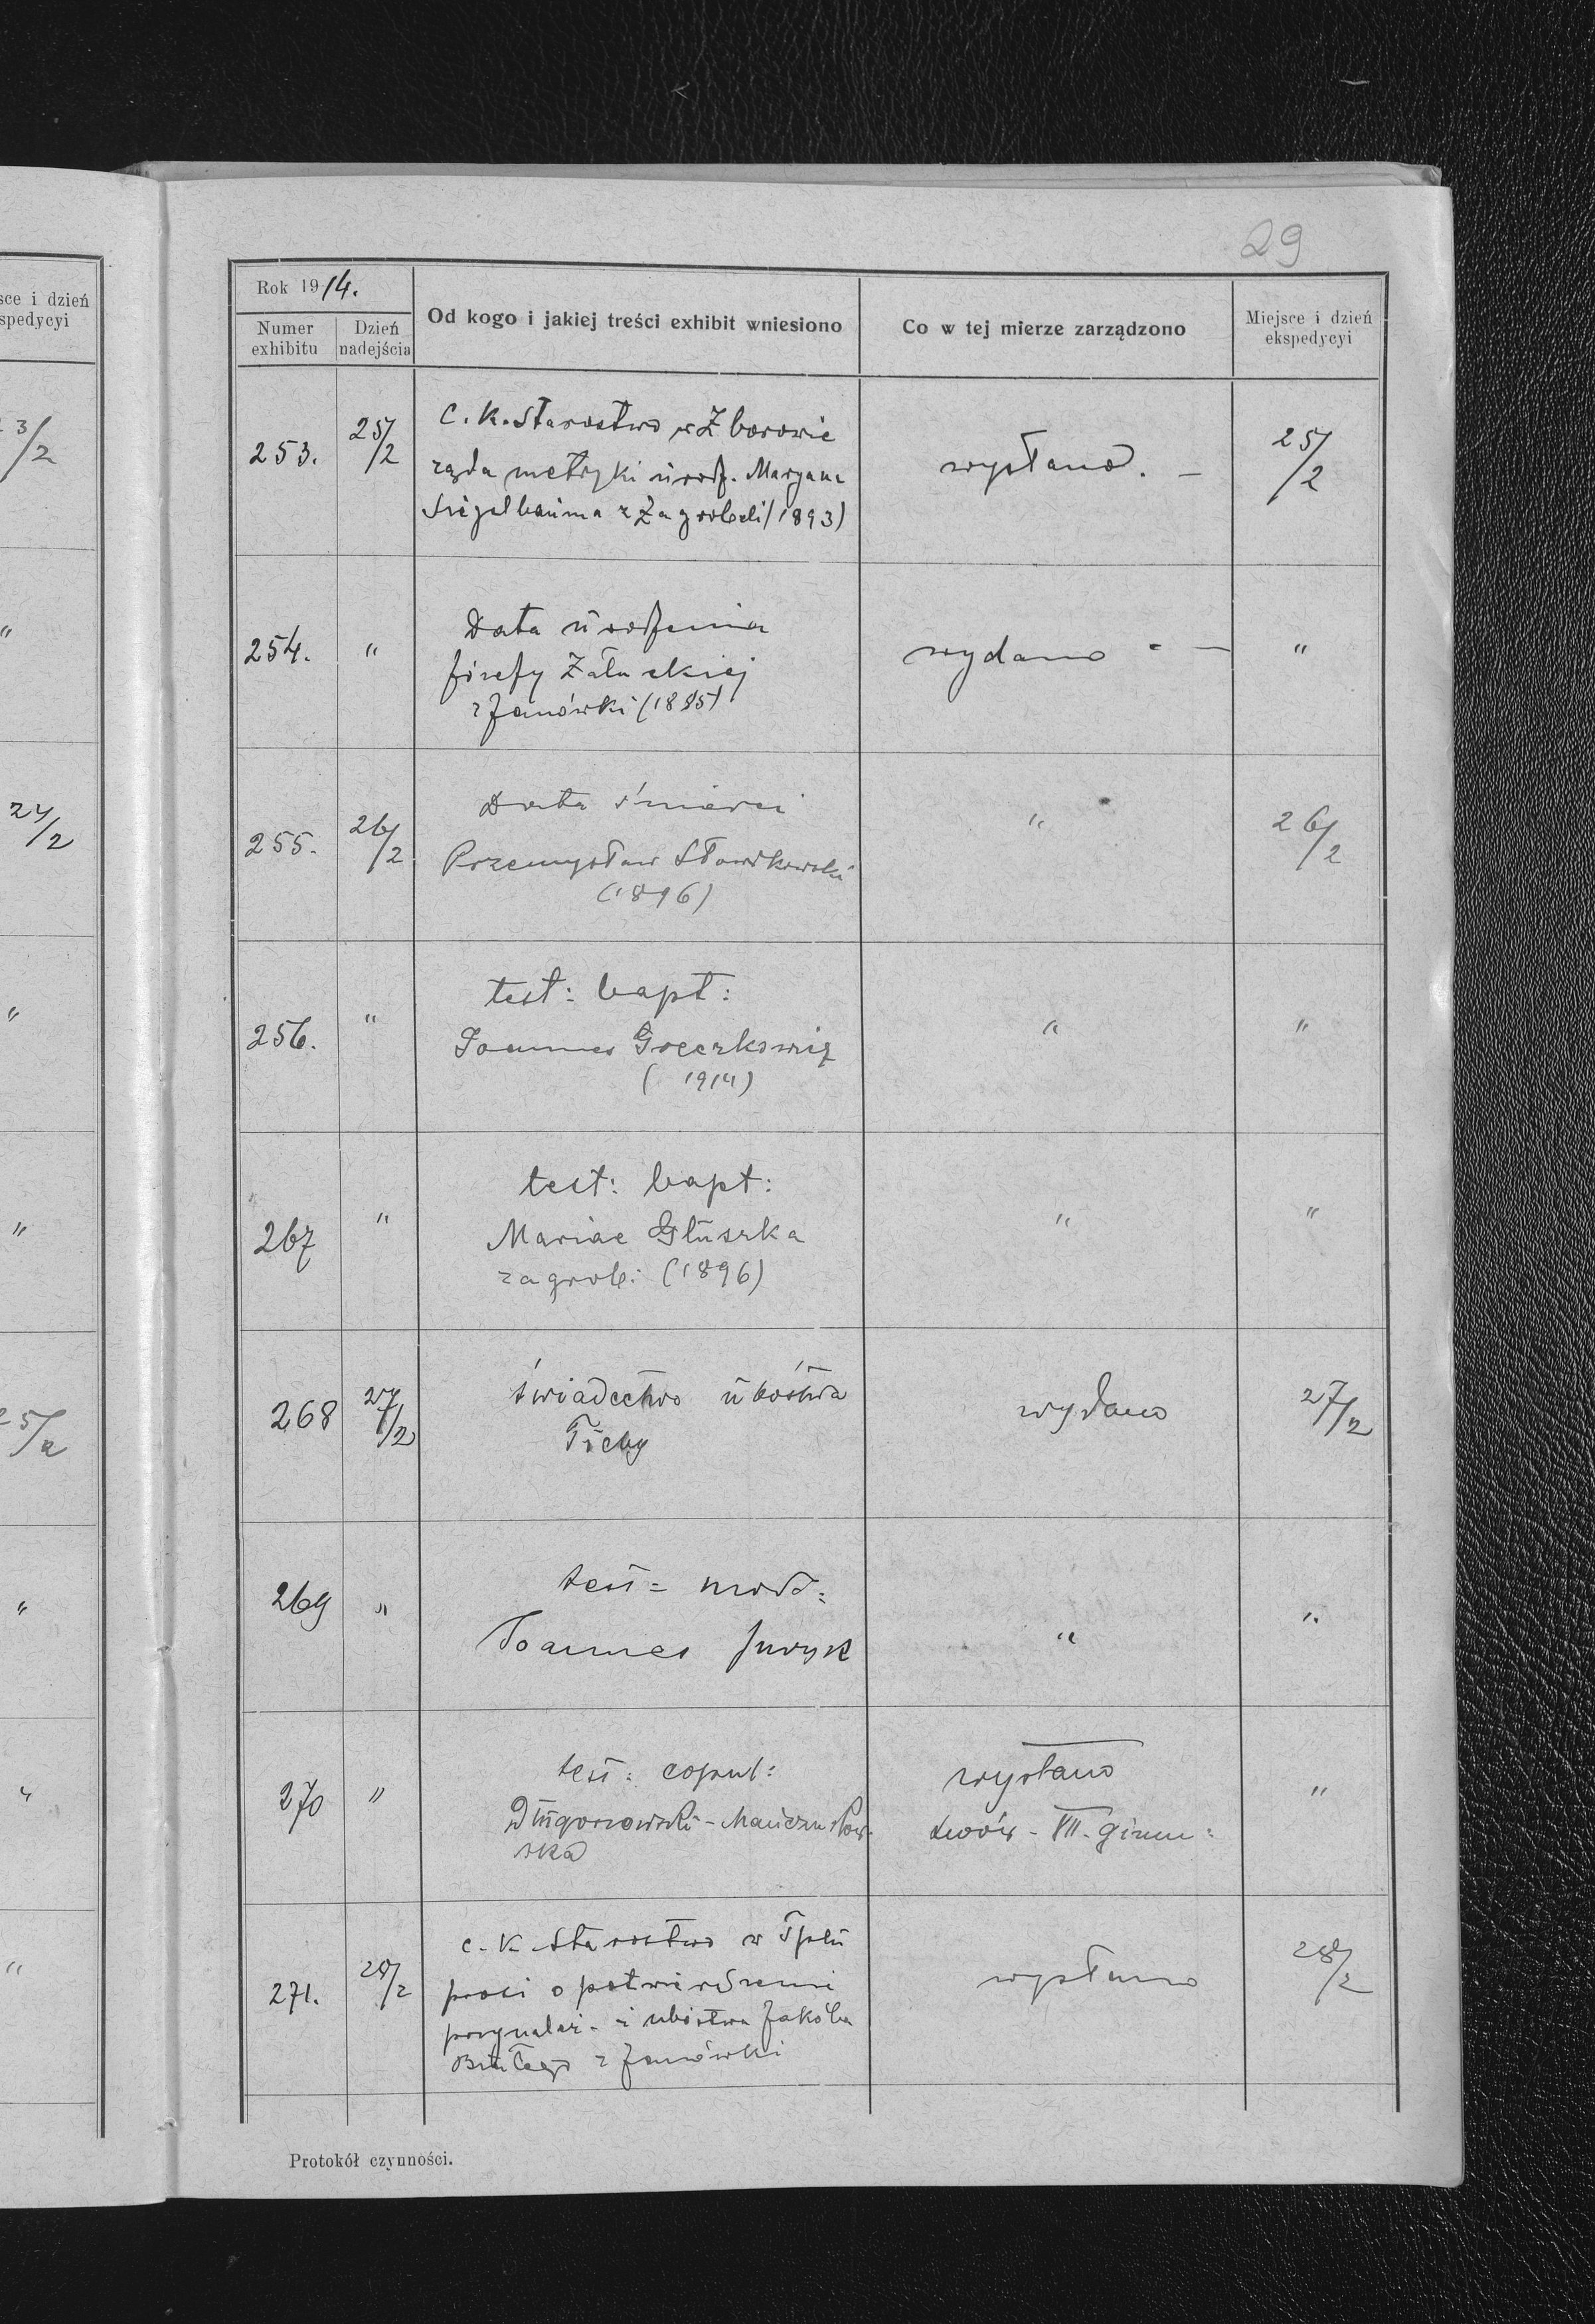 29
sce i dzień
spedycyi
3/2
"
24/2
"
"
25/2
"
"
"
Rok 1914.
Numer exhibitu
Dzień nadejścia
Od kogo i jakiej treści exhibit wniesiono
Co w tej mierze zarządzono
Miejsce i dzień ekspedycyi
253. 25/2 C. K. Starostwo w Zborowie
żąda metryki urodz. Maryana
z Zagrobeli (1893)
wysłano. — 25/2
254. " Data urodzenia
Józefy Załuskiej
z Janówki (1885)
wydano - — "
255. 26/2 Data śmierci
Przemysław
(1896)
" 26/2
256. " test: bapt:
Joannes
(1914)
" "
267 " test: bapt:
Mariae Głuszka
zagrob: (1896)
" "
268 27/2 świadectwo ubóstwa
Tichy
wydano 27/2
269 "
Joannes Juryk
" "
270 " copul:
ska
wysłano
Lwów - VII. gimn: "
271. 28/2 c. K. Starostwo w Tplu
prosi o potwierdzenie
przynależ- i ubóstwa Jakóba
z Janówki
wysłano 28/2
Protokół czynności.